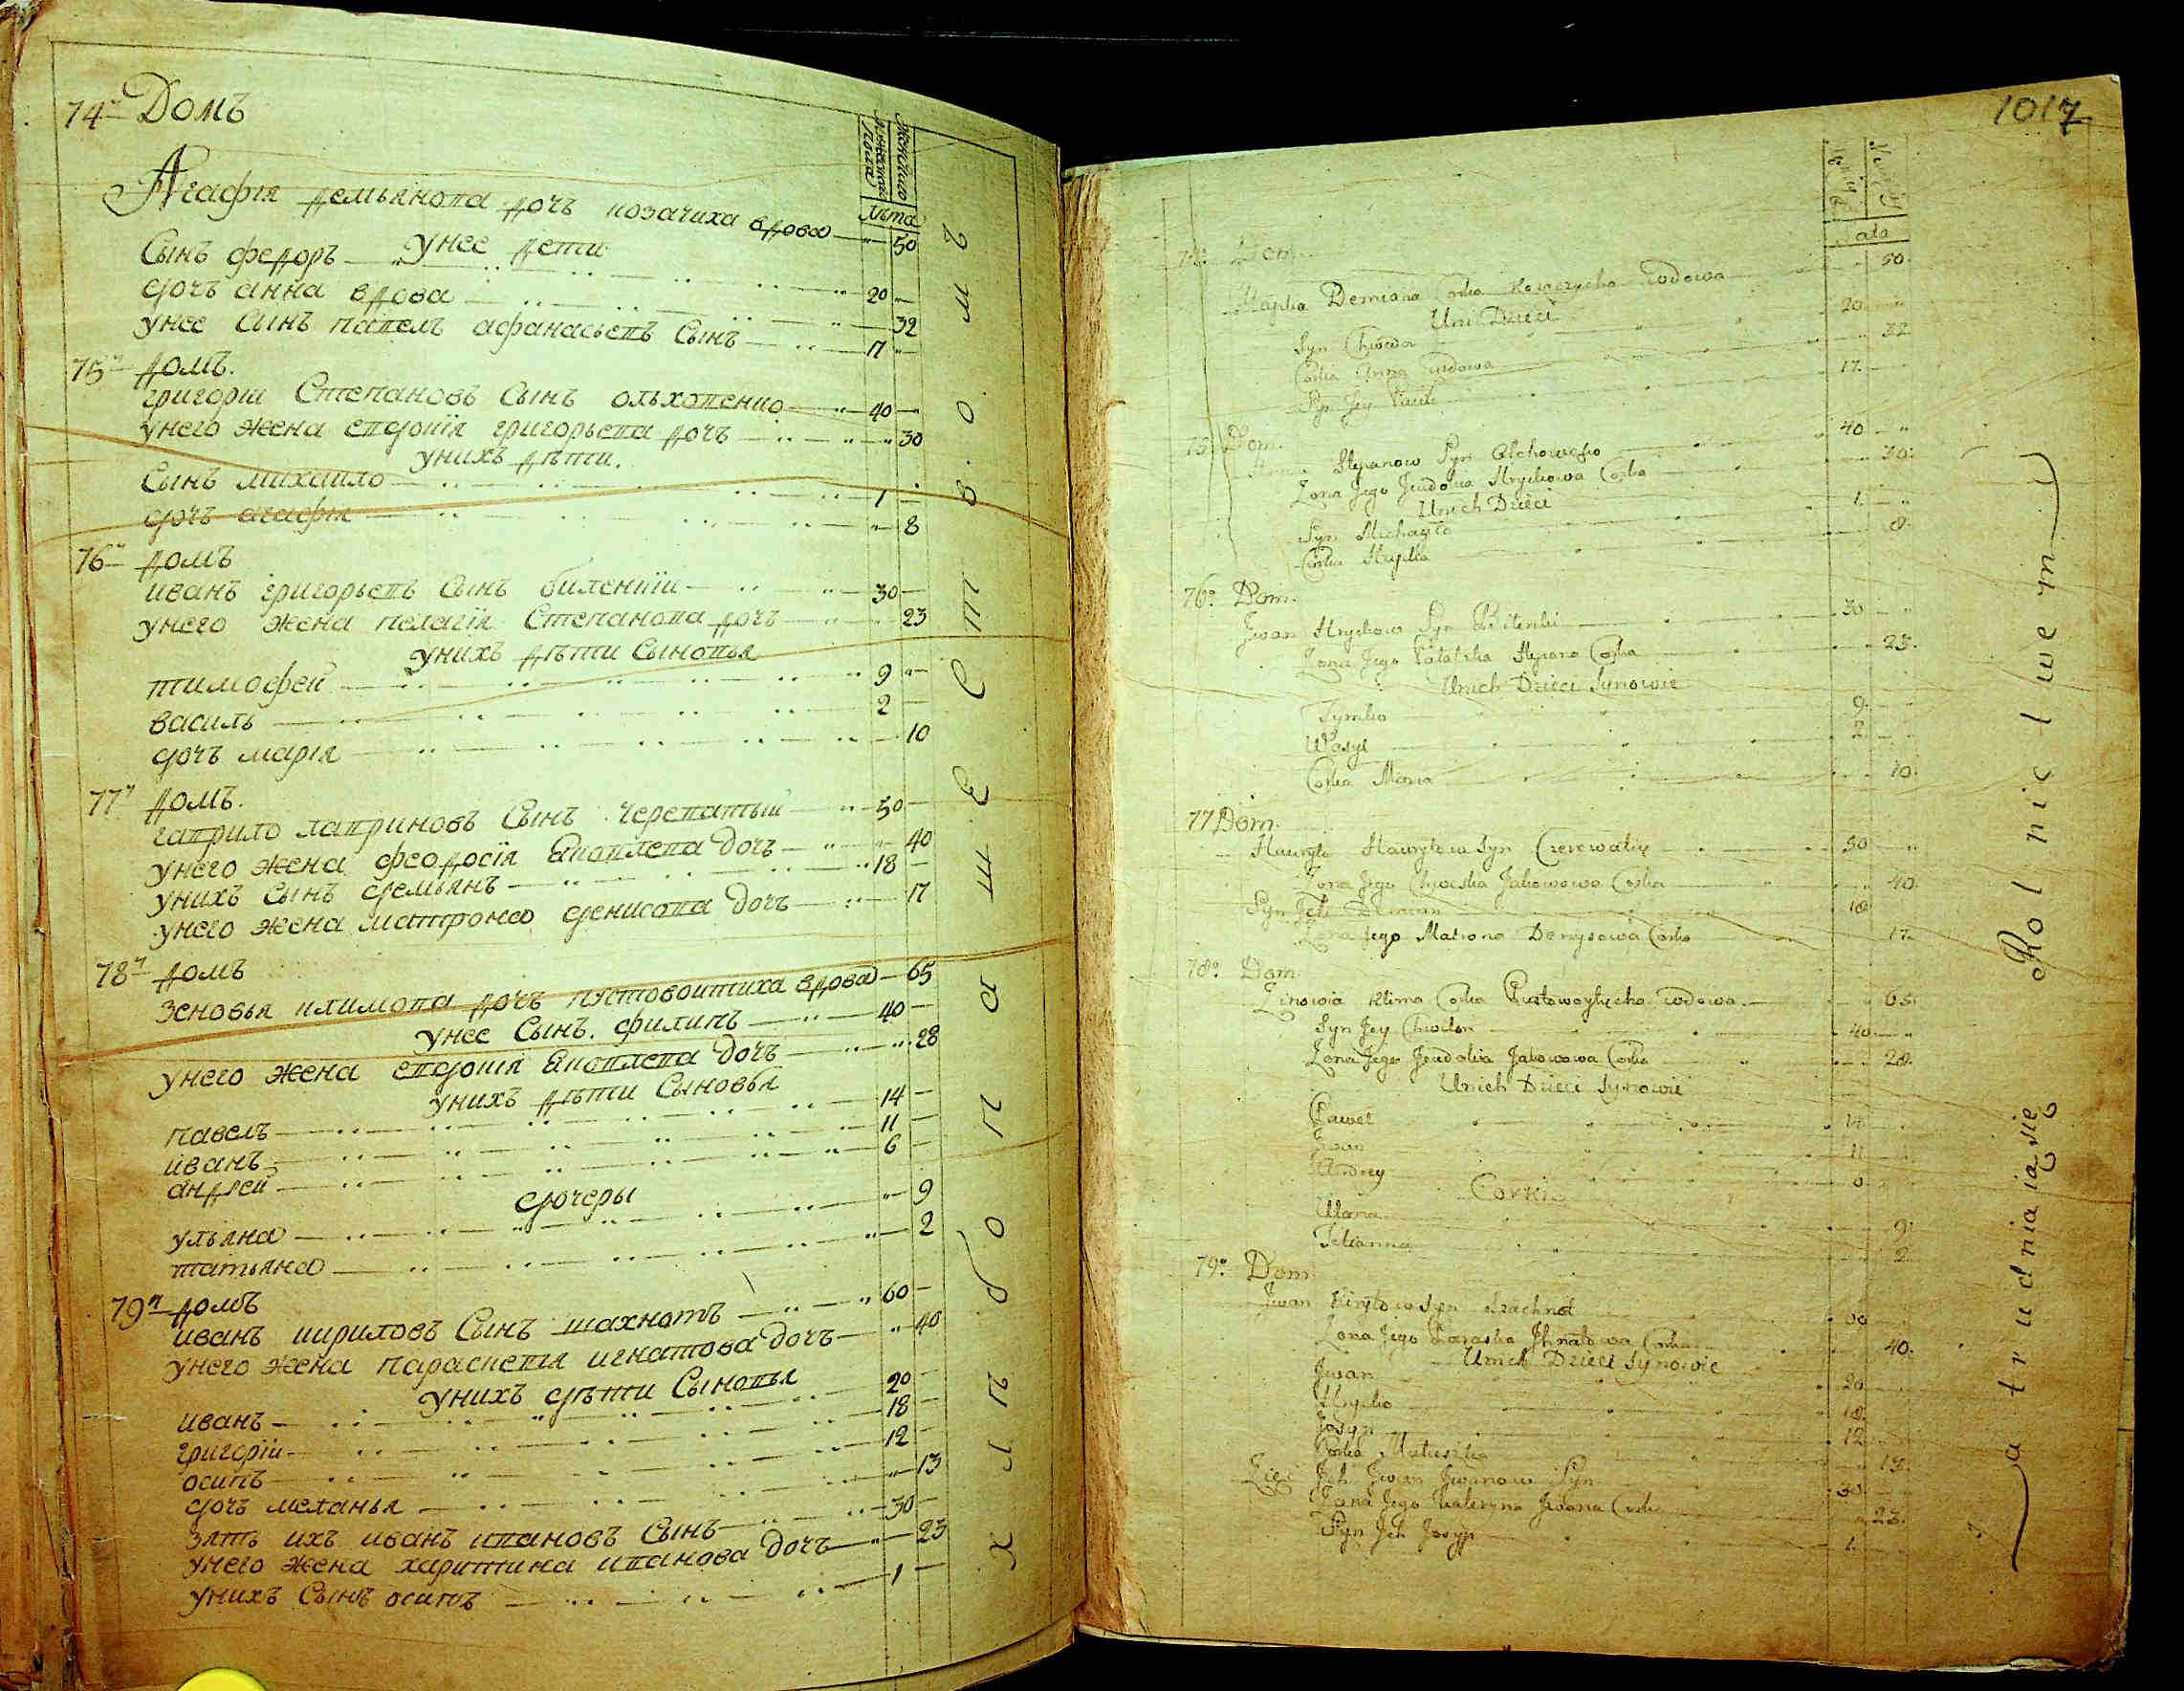 74й Домъ
мужеска пола
женскаго
лѣта
Агафія демьянова дочь козачиха вдова 50
унее дети
Сынъ федоръ 20
дочь анна вдова 32
унее Сынъ павелъ афанасьевъ Сынъ 17
75й домъ.
григорій Степановъ Сынъ ольховенко 40
унего жена евдокія григорьева дочь 30
унихъ дѣти.
Сынъ михаило 1
дочь агафія 8
76й домъ
иванъ григорьевъ Сынъ
30
унего жена пелагія Степанова дочь 23
унихъ дѣти Сыновья
тимофей 9
василь 2
дочь марія 10
77й домъ.
гаврило гавриловъ Сынъ череватый 50
унего жена феодосія Яковлева дочь 40
унихъ Сынъ демьянъ 18
унего жена матрона денисова дочь 17
78й домъ
зеновья климова дочь пустовоитиха вдова 65
унее Сынъ филипъ 40
унего жена евдокія Яковлева дочь 28
унихъ дѣти Сыновья
павелъ 14
иванъ 11
андрей 6
дочеры
ульяна 9
татьяна 2
79й домъ
иванъ кириловъ Сынъ шахнотъ 60
унего жена параскевія игнатова дочь 40
унихъ дѣти Сыновья
иванъ 20
григорій 18
осипъ 12
дочь меланья 13
зять ихъ иванъ ивановъ Сынъ 30
унего жена харитина иванова дочь 23
унихъ Сынъ осипъ 1
хлебопашеством
1017
Lata
74. Dom.
Demiana Corka Kozaczycha wdowa 50.
Unei Dzieci
Syn Chwedor 20
Corka Anna wdowa 32
Syn Jey Pawel 17
75. Dom.
Stepanow Syn Olchowenko 40
Zona Jego Jeudokia Hryckowa Corka 30.
Unich Dzieci
Syn Michayło 1.
Corka Hapka 8.
76o. Dom.
Jwan Hryckow Syn Bilenki 30
Zona Jego Palaszka Stepana Corka 23.
Unich Dzieci Synowie
Tymko 9.
Wasyl 2.
Corka Maria 10.
77 Dom.
Hawryło Hawryłow Syn Czerewatiy 50
Zona Jego Chweska Jakowowa Corka 40.
Syn Ich Demian 18
Zona Jego Matrona Denysowa Corka 17.
78o. Dom.
Zinowia Klima Corka Pustowoytycha wdowa. 65.
Syn Jey
40
Zona Jego Jeudokia Jakowowa Corka 28.
Unich Dzieci Synowie
Pawel 14
Jwan 11
Andrey 6
Corki
Ulana 9.
Tetianna 2.
79o. Dom
Jwan Kiryłow Syn Szachnot 60
Zona Jego Paraska Jhnatowa Corka 40.
Unich Dzieci Synowie
Jwan 20
Hrycko 18.
Josyp 12.
Corka
13.
Zięć Ich Jwan Jwanow Syn 30
Zona Jego
Jwana Corka 23.
Syn Ich Josyp 1.
a trudniaią się Rolnictwem